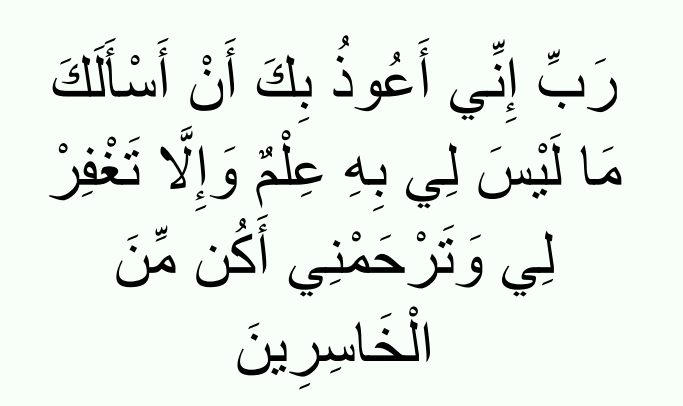 رَبِّ إِنِّي أَعُوذُ بِكَ أَنْ أَسْأَلَكَ
مَا لَيْسَ لِي بِهِ عِلْمٌ وَإِلَّا تَغْفِرْ
لِي وَتَرْحَمْنِي أَكُن مِّنَ
الْخَاسِرِينَ